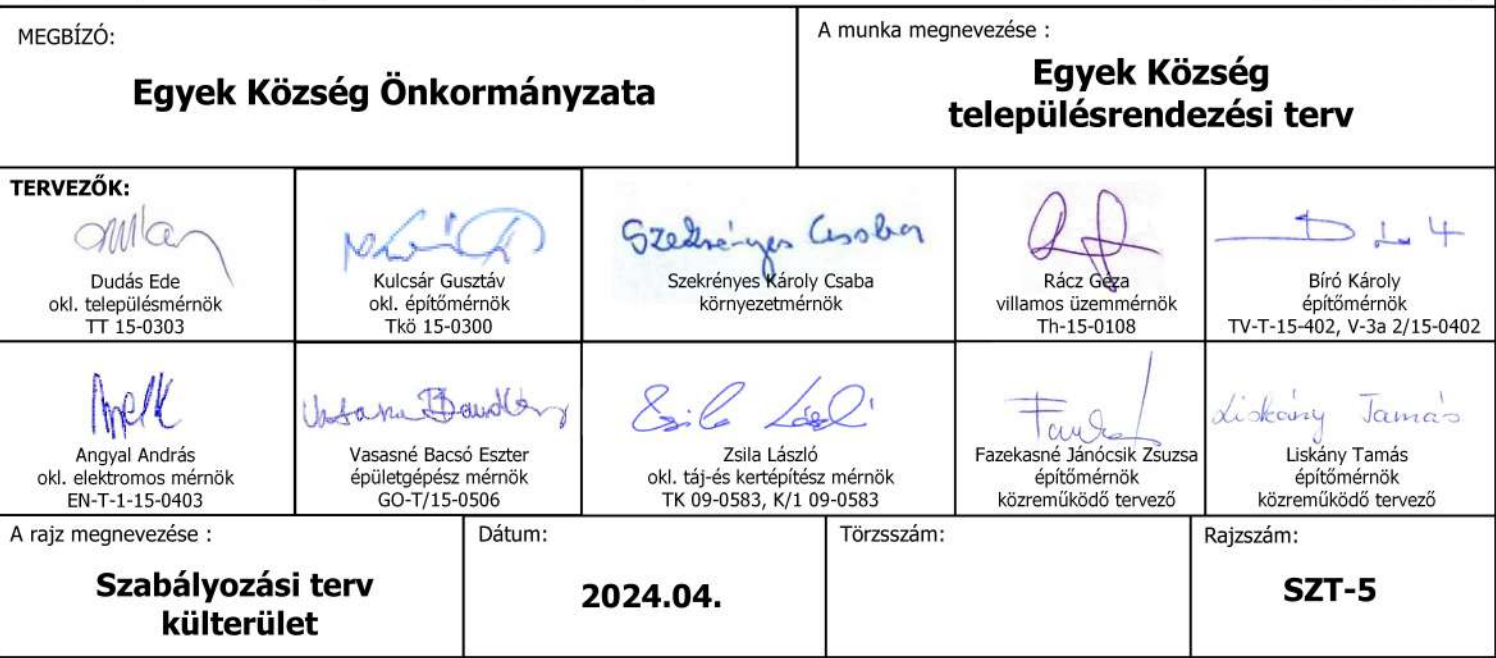 MEGBÍZÓ:
Egyek Község Önkormányzata
A munka megnevezése :
Egyek Község
településrendezési terv
TERVEZŐK:
Dudás Ede
okl. településmérnök
TT 15-0303
Kulcsár Gusztáv
okl. építőmérnök
Tkö 15-0300
Szekrényes Csaba
Szekrényes Károly Csaba
környezetmérnök
Rácz Géza
villamos üzemmérnök
Th-15-0108
Bíró Károly
építőmérnök
TV-T-15-402, V-3a 2/15-0402
Angyal András
okl. elektromos mérnök
EN-T-1-15-0403
Vasasné Bacsó Eszter
épületgépész mérnök
GO-T/15-0506
Zsila László
Zsila László
okl. táj-és kertépítész mérnök
TK 09-0583, K/1 09-0583
Fazekasné Jánócsik Zsuzsa
építőmérnök
közreműködő tervező
Liskány Tamás
Liskány Tamás
építőmérnök
közreműködő tervező
A rajz megnevezése :
Szabályozási terv
külterület
Dátum:
2024.04.
Törzsszám:
Rajzszám:
SZT-5